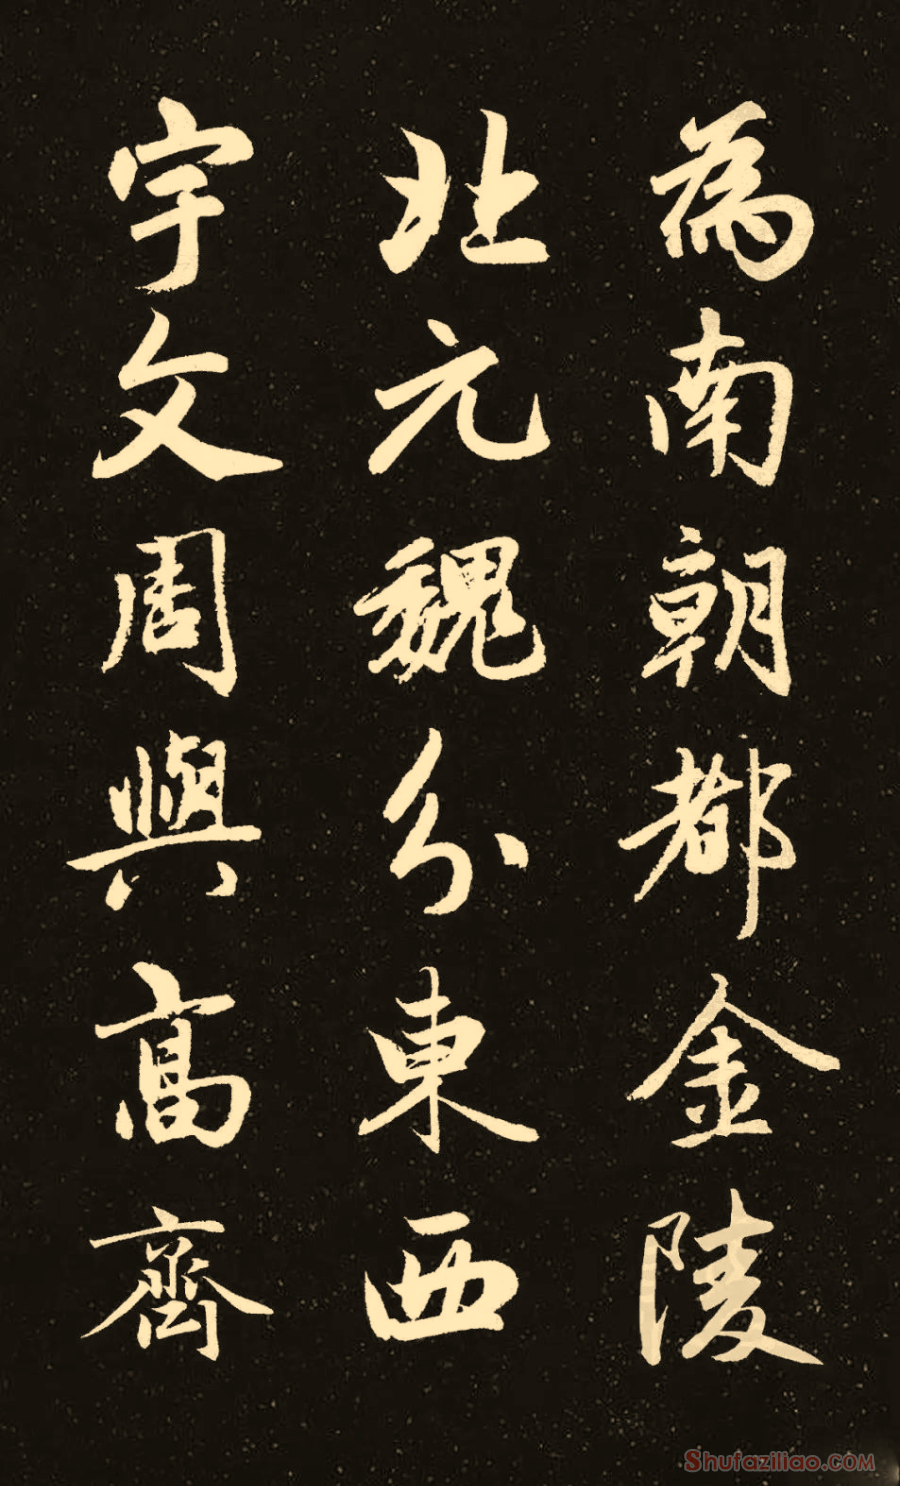 為南朝都金陵
北元魏分東西
宇文周與高齊
Shufaziliao.com